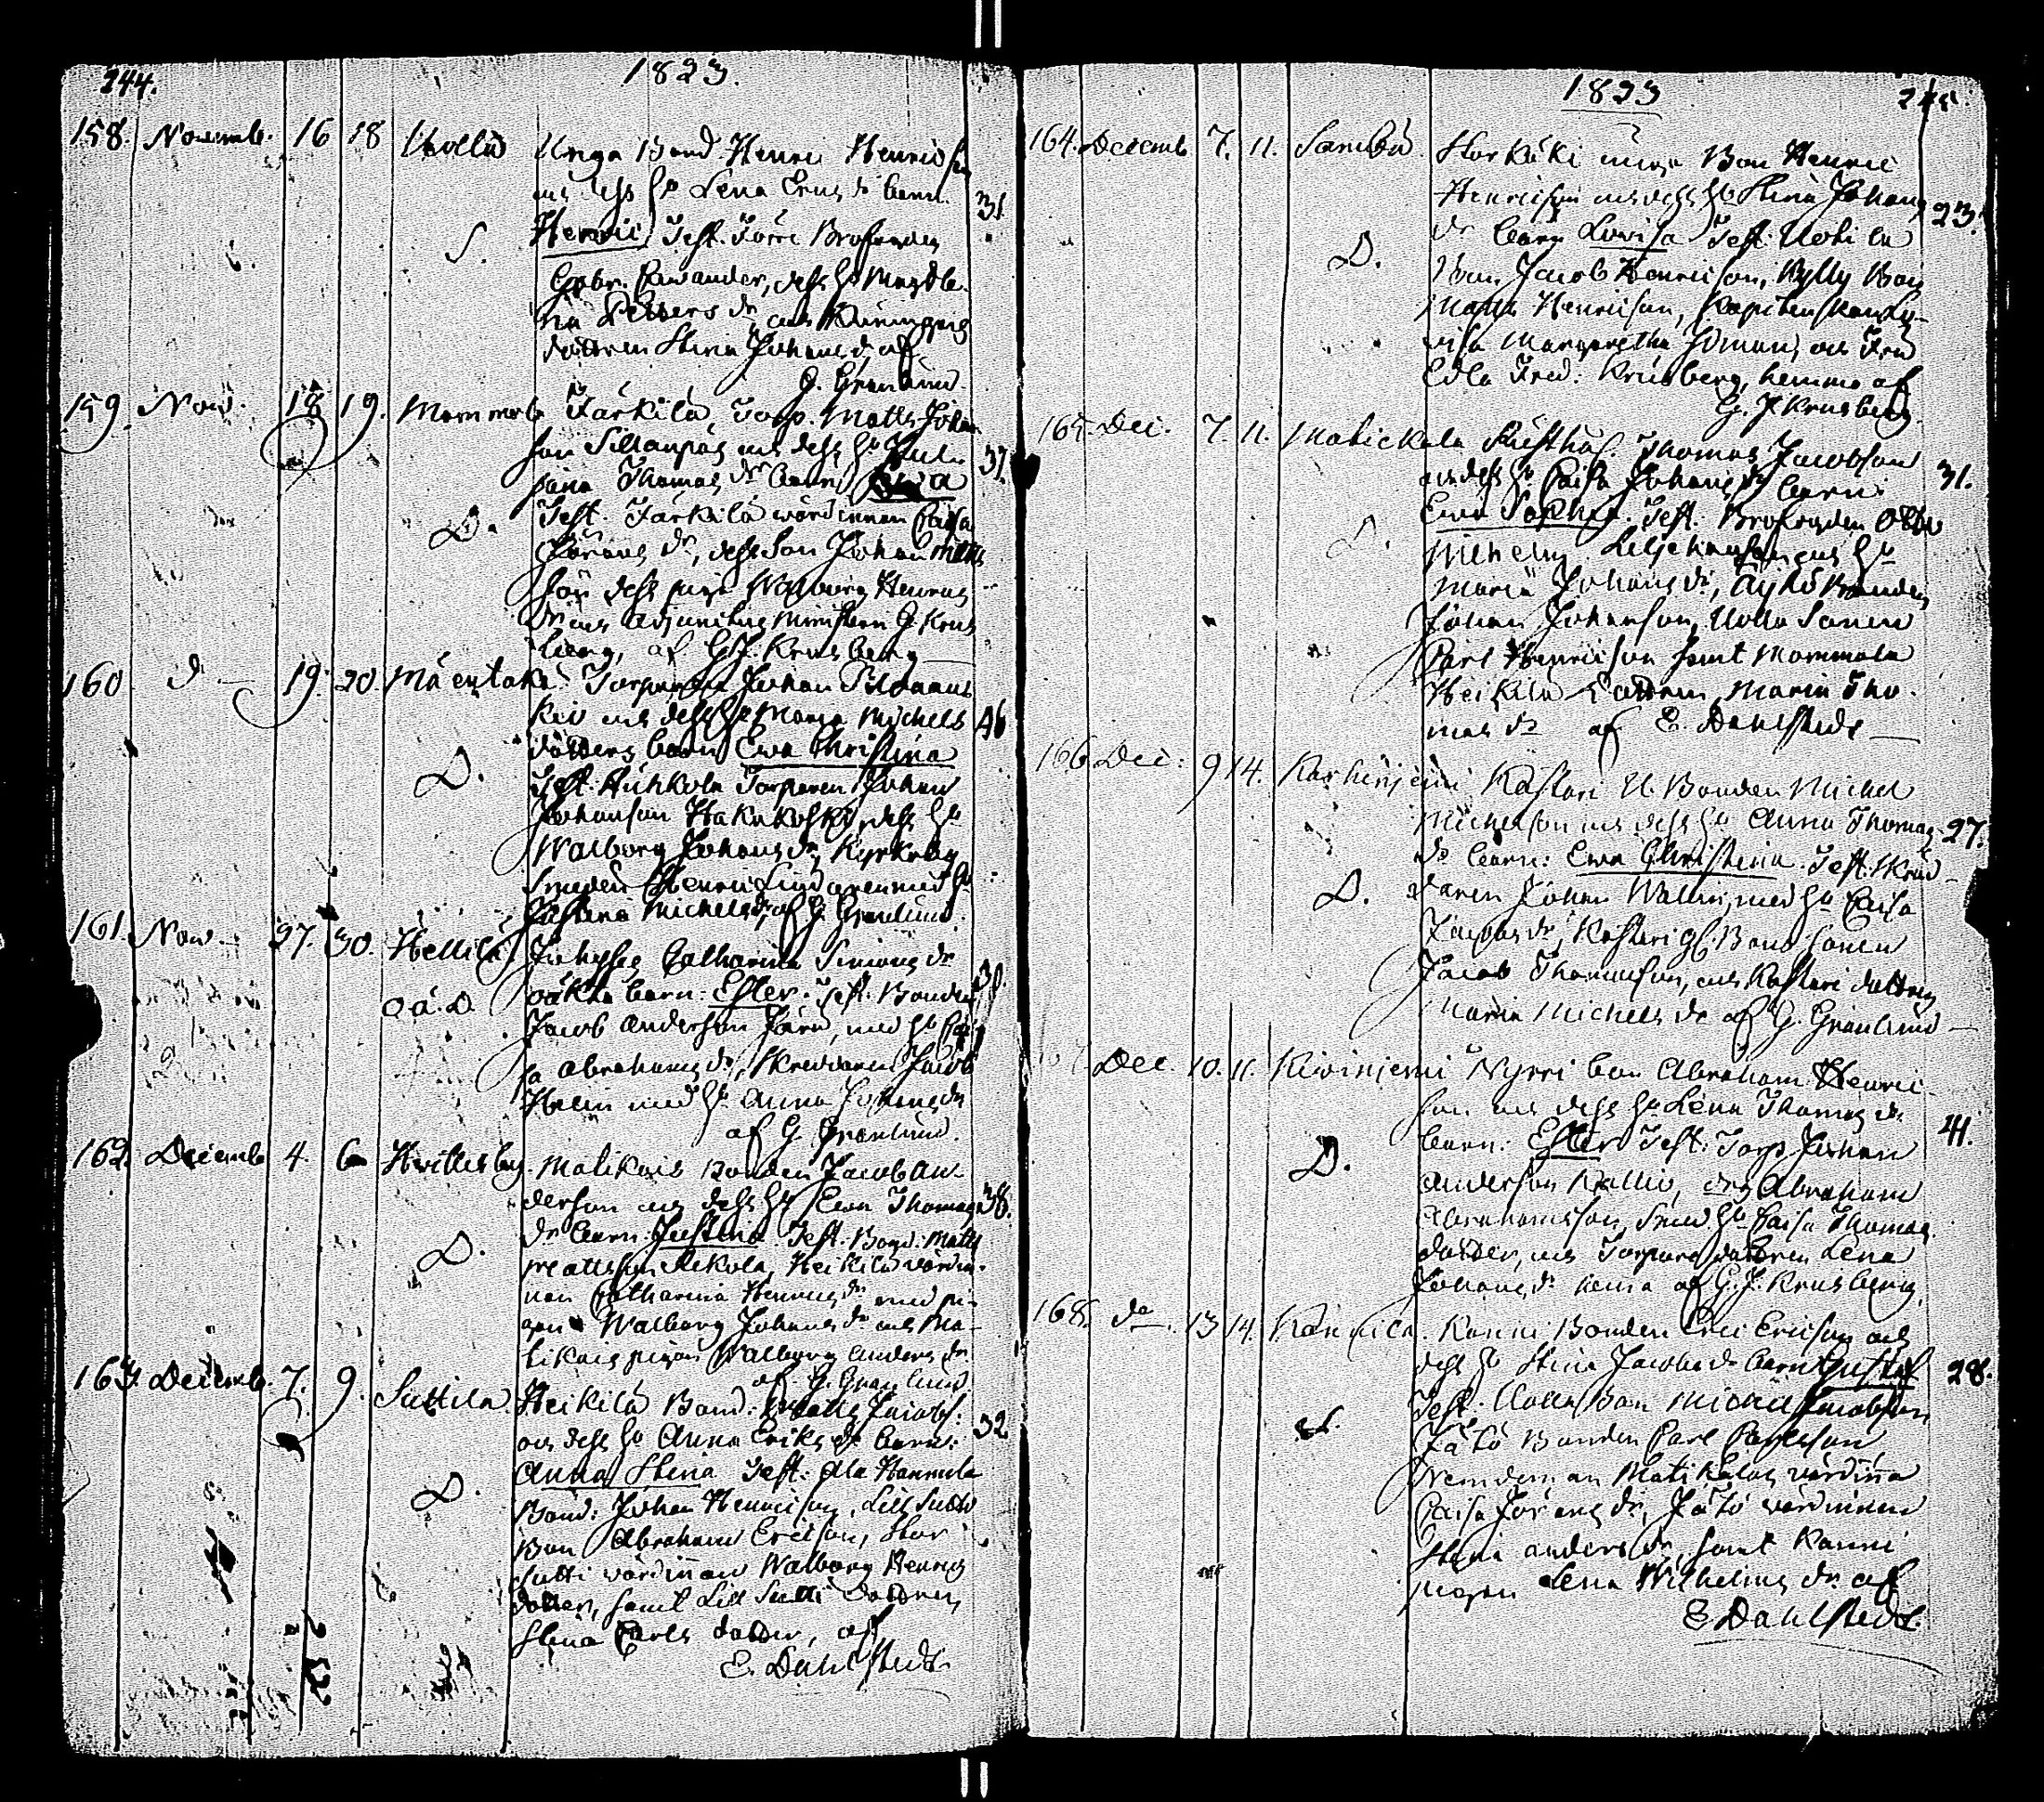 244.
1823.
158. Novemb. 16 18
Unga Bond. Henric Henricson
och dess h:u Lena Erics dr barn
31.
Henric, Test. Förre Brofogden
S.
Gabr. Cavander, dess h:u Magdle-
na Petters dr och
dottren Stina Johans dr af
G. Grönlund.
159. Nov. 18 19. Mommola Järkilä Torp. Matts Johan
son Sillanpää och dess h:u Juli
37.
jana Thomas dr barn Eva
Test. Järkilä wärdinnan Caisa
D.
Görans dr, dess Son Johan Matts
son dess piga Walborg Henrics
dr och adjunctus Ministerii G. Krus
berg, af G. J. Krusberg
160 d 19. 20. Mäentaka Torparen Johan
och dess h:u Maria Michels
46
dotters barn Ewa Christina
D.
Test. Huhkola Torparen Johan
Johanson Hakukoski, dess h:u
Walborg Johans dr, Kyrkoby
Smeden Henric Lindgren med h:u
Justina Michels dr, af G. Grönlund.
161. Nov. 27. 30. Hellilä Inhyses Catharina Simons dr
oä. D. oäkta barn: Ester. Test. Bonden
38.
Jacob Anderson Järä, med h:u Cai
sa Abrahams dr, Skreddaren Jacob
Helin med h:u Anna Johans dr
af G. Grönlund.
162. Decemb 4. 6 Hvittisby. Matikais Bonden Jacob An-
derson och dess h:u Eva Thomas
38.
dr barn: Justina. Test. Bond. Matts
D.
Mattsson Rekola, Heikilä wärdin-
nan Catharina Henrics dr med pi-
gan Walborg Johans dr och Ma-
tikais pigan Walborg Anders dr
af G. Grönlund
163. Decemb. 7. 9. Suttila. Heikilä Bond: Matts Jacobs:
och dess h:u Anna Eriks dr barn:
32
Anna Stina Test: Ala Hannula
D.
Bond: Johan Henricson, Lill Sutti
Bon Abraham Ericson, Stor
Sutti wärdinnan Walborg Henrics
dotter, samt Lill Sutti dottren
Stina Carls dotter, af
E. Dahlstedt
1823
245.
164. Decemb 7. 11. Sambu. Storkäki unge Bon Henric
Henricson och dess h:u Stina Johans
23.
dr barn Lovisa Test: Uoti la
D.
Bon Jacob Henricson, Kylly Bon
Matts Henricson, Kapitenskan Lo-
visa Margaretha Idman, och Frö
Edla Fred: Krusberg, hemma af
G. J. Krusberg
165. Dec. 7. 11. Matickala Rusthål. Thomas Jacobson
och dess h:u Caisa Johans dr barn:
31.
Ewa Sophia. Test. Brofogden Otto
D.
Wilhelm Liljehansson och h:u
Maria Johans dr, Äyhö Bonden
Johan Johanson, Uolla Sonen
Carl Henricson samt Mommola
Heikilä dottren Maria Tho-
mas dr af E. Dahlstedt
166 Dec: 9 14. Karhinjemi Kastari U. Bonden Michel
Michelson och dess h:u Anna Thomas
27.
dr barn: Ewa Christina. Test: Skred-
D.
daren Johan Wallin, med h:u Caisa
Jacobs dr, Kastari gl. Bond Sonen
Jacob Thomasson, och Kastari dottren
Maria Michels dr af G. Grönlund
Dec. 10. 11. Kiwinjemi Nyrri bon Abraham Henric
son och dess h:u Lena Thomas dr
barn: Ester. Test: Torp. Johan
41.
D.
Anderson Kallio, drg. Abraham
Abrahamsson, Smed h:u Caisa Thomas
dotter, och Torpare dottren Lena
Johans dr hema af G. J. Krusberg.
168. do. 13 14. Kännilä. Kanni Bonden Eric Ericson och
dess h:u Stina Jacobs dr barn Gustaf.
28.
Test. Uolla Bon Michel Jacobson
Jätö Bonden Carl Carlson
Matikalas wärdinna
Caisa Görans dr, Jätö wärdinnan
Stina Anders dr, samt Kanni
pigan Lena Wilhelms dr af
E. Dahlstedt.